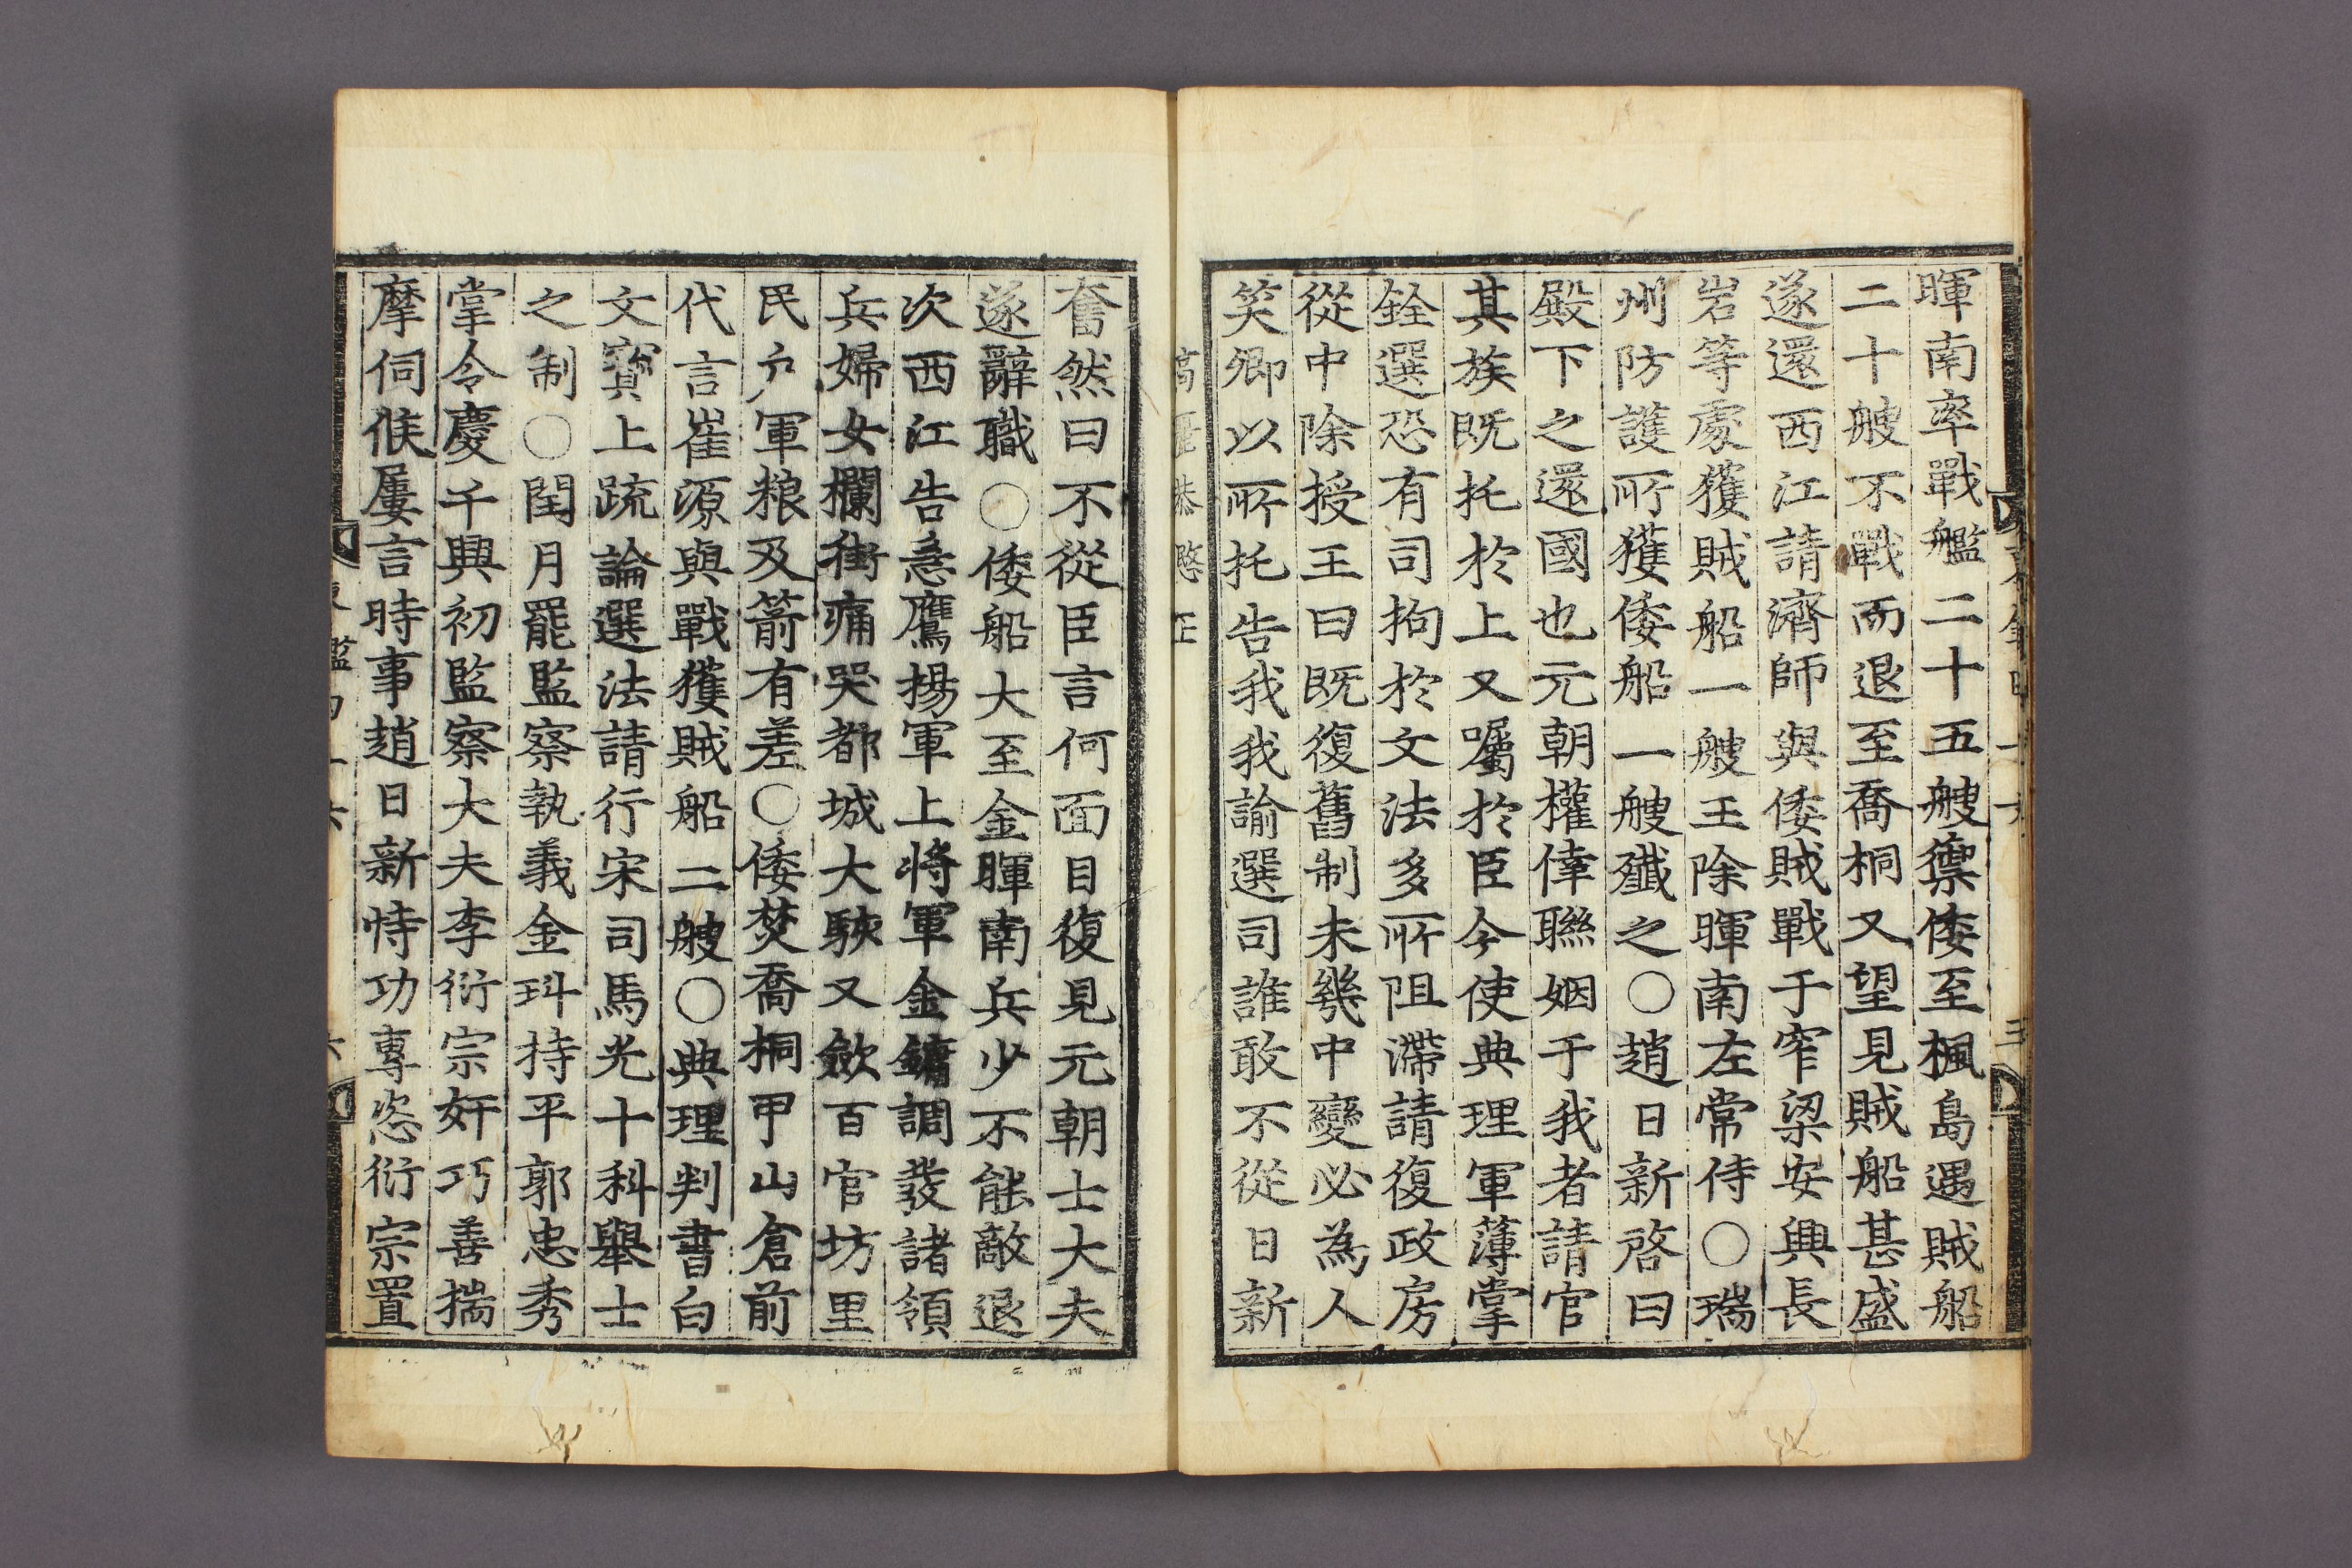 暉南率戰艦二十五艘禦倭至楓島遇賊船
二十艘不戰而退至喬桐又望見賊船甚盛
遂還西江請濟師與倭賊戰于窄梁安興長
岩等處獲賊船一艘王除暉南左常侍○瑞
州防護所獲倭船一艘殲之○趙日新啓曰
殿下之還國也元朝權倖聯姻于我者請官
其族既托於上又囑於臣今使典理軍簿掌
銓選恐有司拘於文法多所阻滯請復政房
從中除授王曰既復舊制未幾中變必為人
笑卿以所托告我我諭選司誰敢不從日新
奮然曰不從臣言何面目復見元朝士大夫
遂辭職○倭船大至金暉南兵少不能敵退
次西江告急鷹揚軍上将軍金鏞調發諸領
兵婦女欄街痛哭都城大駭又斂百官坊里
民户軍粮及箭有差○倭焚喬桐甲山倉前
代言崔源與戰獲賊船二艘○典理判書白
文寶上疏論選法請行宋司馬光十科舉士
之制○閏月罷監察執義金㺶持平郭忠秀
掌令慶千興初監察大夫李衍宗奸巧善揣
摩伺候屢言時事趙日新恃功專恣衍宗置